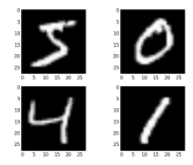 0
5
10
15
20
25
0 5 10 15 20 25
5
0
5
10
15
20
25
0 5 10 15 20 25
0
0
5
10
15
20
25
0 5 10 15 20 25
4
0
5
10
15
20
25
0 5 10 15 20 25
1